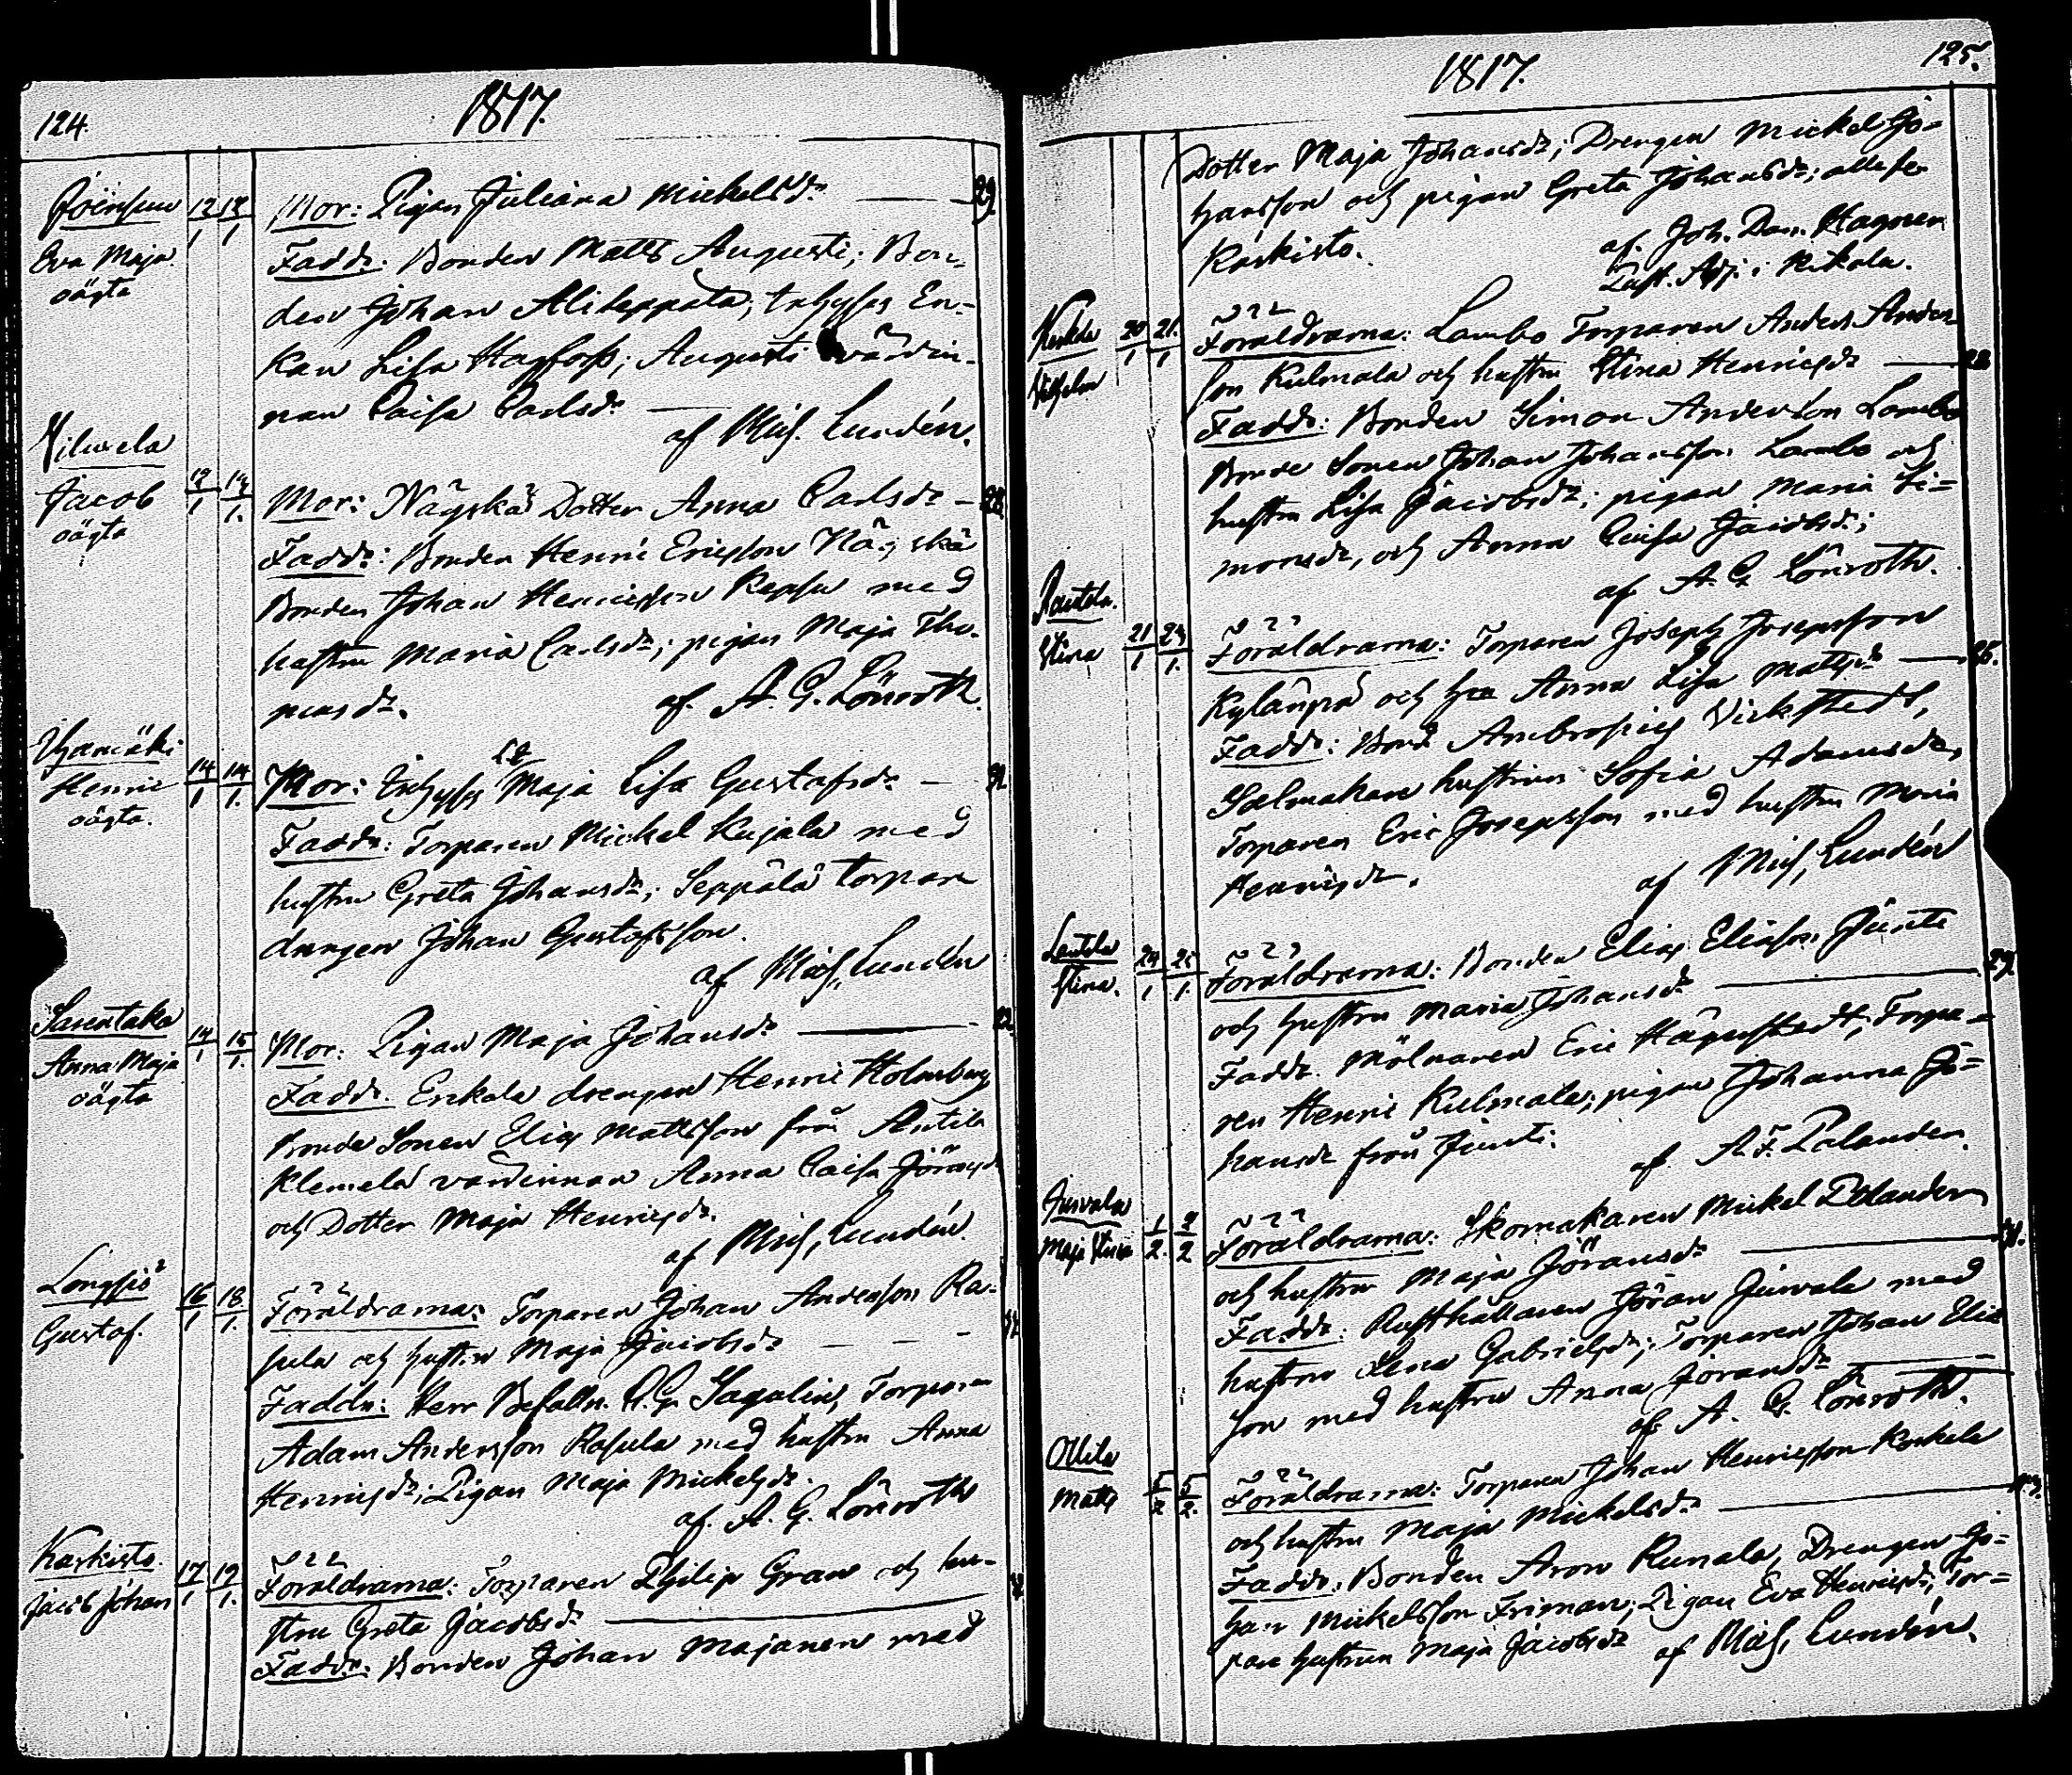 124.
1817.
Eva Maja
oägta
12/1 12/1
Mor: Pigan Juliana Mickelsdr 29.
Faddr. Bonden Matts Augusti; Bon-
den Johan Alikeppata; Inhyses En-
kan Lisa Hagfors; Augusti värdin-
nan Caisa Carlsdr
af Mich. Lundén.
Jacob
oägta
12/1
Mor: Näyskä Dotter Anna Carlsdr 28.
Faddr: Bonden Henric Ericsson Näyskä
Bonden Johan Henricsson med
hustru Maria Carlsdr; pigan Maja Tho-
masdr.
af. A. G. Lönroth.
Ojamäki
Henric
oägta.
14/1 14/1.
Mor: Inhyses Maja Lisa Gustafsdr
Faddr: Torparen Mickel Kujala med
hustru Greta Johansdr; Seppälä torpare
drengen Johan Gustafsson.
af Mich, Lundén
Anna Maja
oägta
14/1 15/1.
Mor: Pigan Maja Johansdr
Faddr. Erkola drengen Henric Holmberg
Bonde Sonen Elias Mattsson från Antila
Klemelä värdinnan Anna Caisa Jöransdr
och Dotter Maja Henricsdr.
af Mich, Lundén.
Longsjö
Gustaf.
16/1 18/1.
Föräldrarna: Torparen Johan Andersson Ra-
sula och hustru Maja Jacobsdr
Faddr: Herr Befalln. Sagulin, Torparen
Adam Andersson Rasula med hustru Anna
Henricsdr; Pigan Maja Mickelsdr.
af. A. G. Lönroth
Karkisto.
Jacob Johan
17/1 19/1.
Föräldrarna: Torparen Philip Gran och hu-
stru Greta Jacobsdr
Faddr: Bonden Johan Majanen med
1817.
125.
Dotter Maja Johansdr; Drengen Mickel Jo-
hansson och pigan Greta Johansdr; alla fr.
Karkisto.
af. Joh. Dan. Hagren
Past. Adj. i Kikala.
Wilhelm
20/1 21/1.
Föräldrarna: Lambo Torparen Anders Anders-
son Kulmala och hustru Stina Henricsdr
Faddr: Bonden Simon Andersson Lambo
Bonde Sonen Johan Johansson Lambo och
hustru Lisa Jacobsdr; pigan Maria Si-
monsdr, och Anna Caisa Jacobsdr;
af A. G. Lönroth.
Rautela.
Stina
21/1 24/1.
Föräldrarna: Torparen Joseph Josepsson
Kylänpä och hru Anna Lisa Mattsdr 26.
Faddr: Bond. Ambrosius Wickstedt,
hustrun Sofia Adamsdr,
Torparen Eric Josepsson med hustru Maria
Henricsdr.
af Mich, Lundén
Lautela
Stina.
24/1 25/1.
Föräldrarna: Bonden Elias Eliasson Junti
och hustru Maria Johansdr 29.
Faddr. Mölnaren Eric Hägerstedt, Torpa-
ren Henric Kulmala; pigan Johanna Jo-
hansdr från Junti.
af. A. F. Polander.
Jurvala
Maja Stina
1/2. 2/2
Föräldrarna: Skomakaren Mickel Polander
och hustru Maja Jöransdr
Faddr: Rusthållaren Jöran Jurvala med
hustru Lena Gabrielsdr; Torparen Johan Elias
son med hustru Anna Jöransdr
af A. G. Lönroth.
Ollila
Matts
5/2 5/2.
Föräldrarna: Torparen Johan Henricsson Koskela
och hustru Maja Mickelsdr
Faddr: Bonden Aron Runala, Drengen Jo-
han Mickelsson Friman; Pigan Eva Henricsdr; Tor-
pare hustrun Maja Jacobsdr
af Mich, Lundén.